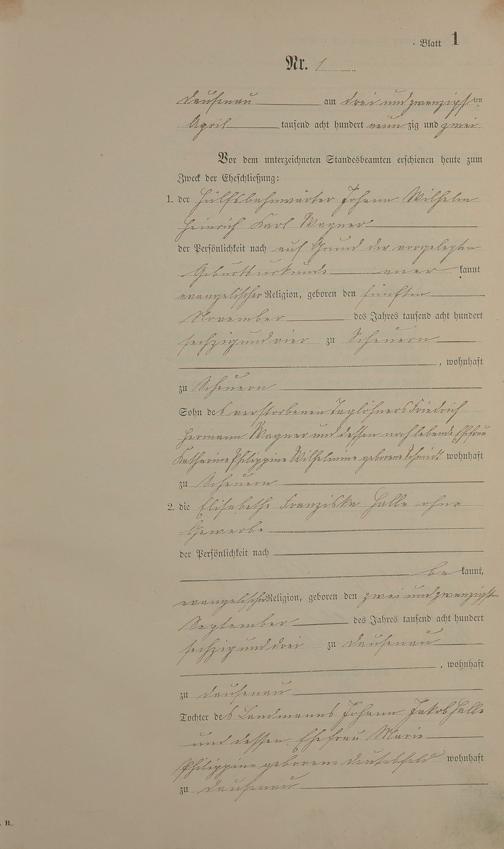 Blatt 1
Nr. 1
Dausenau am drei und zwanzigsten
April tausend acht hundert neun zig und zwei
Vor dem unterzeichneten Standesbeamten erschienen heute zum
Zweck der Eheschließung:
1. der Hülfsbahnwärter Johann Wilhelm
Heinrich Karl Wagner
der Persönlichkeit nach auf Grund der vorgelegten
Geburtsurkunde aner kannt
evangelischer Religion, geboren den fünften
November des Jahres tausend acht hundert
sechzig und vier zu Scheuern
, wohnhaft
zu Scheuern
Sohn des verstorbenen Taglöhners Friedrich
Hermann Wagner und dessen noch lebende Ehefrau
Katharine Philippine Wilhelmine geborene Schmidt wohnhaft
zu Scheuern
2. die Elisabethe Franziska Halle ohne
Gewerbe
der Persönlichkeit nach
be kannt,
evangelischer Religion, geboren den zwei und zwanzigsten
September des Jahres tausend acht hundert
sechzig und drei zu Dausenau
, wohnhaft
zu Dausenau
Tochter des Landmanns Johann Jakob Halle
und dessen Ehefrau Marie
Philippine geborene wohnhaft
zu Dausenau